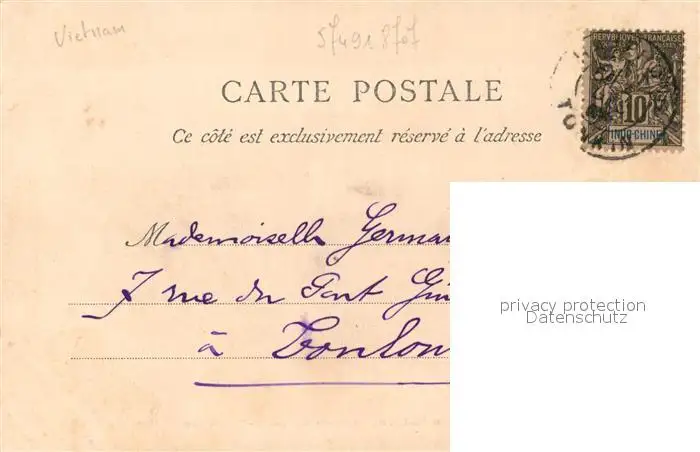 Vietnam
57491 8707
REPUBLIQUE FRANÇAISE
10
INDO-CHINE
TONKIN
CARTE POSTALE
Ce côté est exclusivement réservé à l'adresse
Mademoiselle Germai
7 rue du Pont
à Toulon
privacy protection
Datenschutz